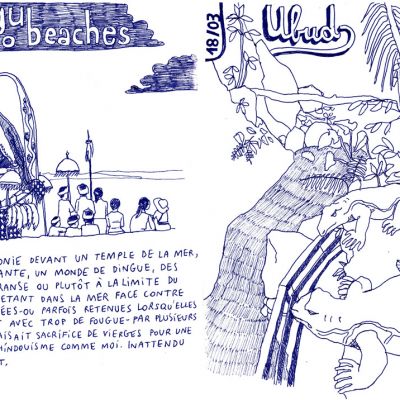 gu
o beaches
ONIE DEVANT UN TEMPLE DE LA MER,
ANTE, UN MONDE DE DINGUE, DES
RANSE OU PLUTÔT À LA LIMITE DU
ETANT DANS LA MER FACE CONTRE
ÉES-OU PARFOIS RETENUES LORSQU'ELLES
T AVEC TROP DE FOUGUE-PAR PLUSIEURS
AISAIT SACRIFICE DE VIERGES POUR UNE
HINDOUISME COMME MOI. INATTENDU
T,
18/03
Ubud